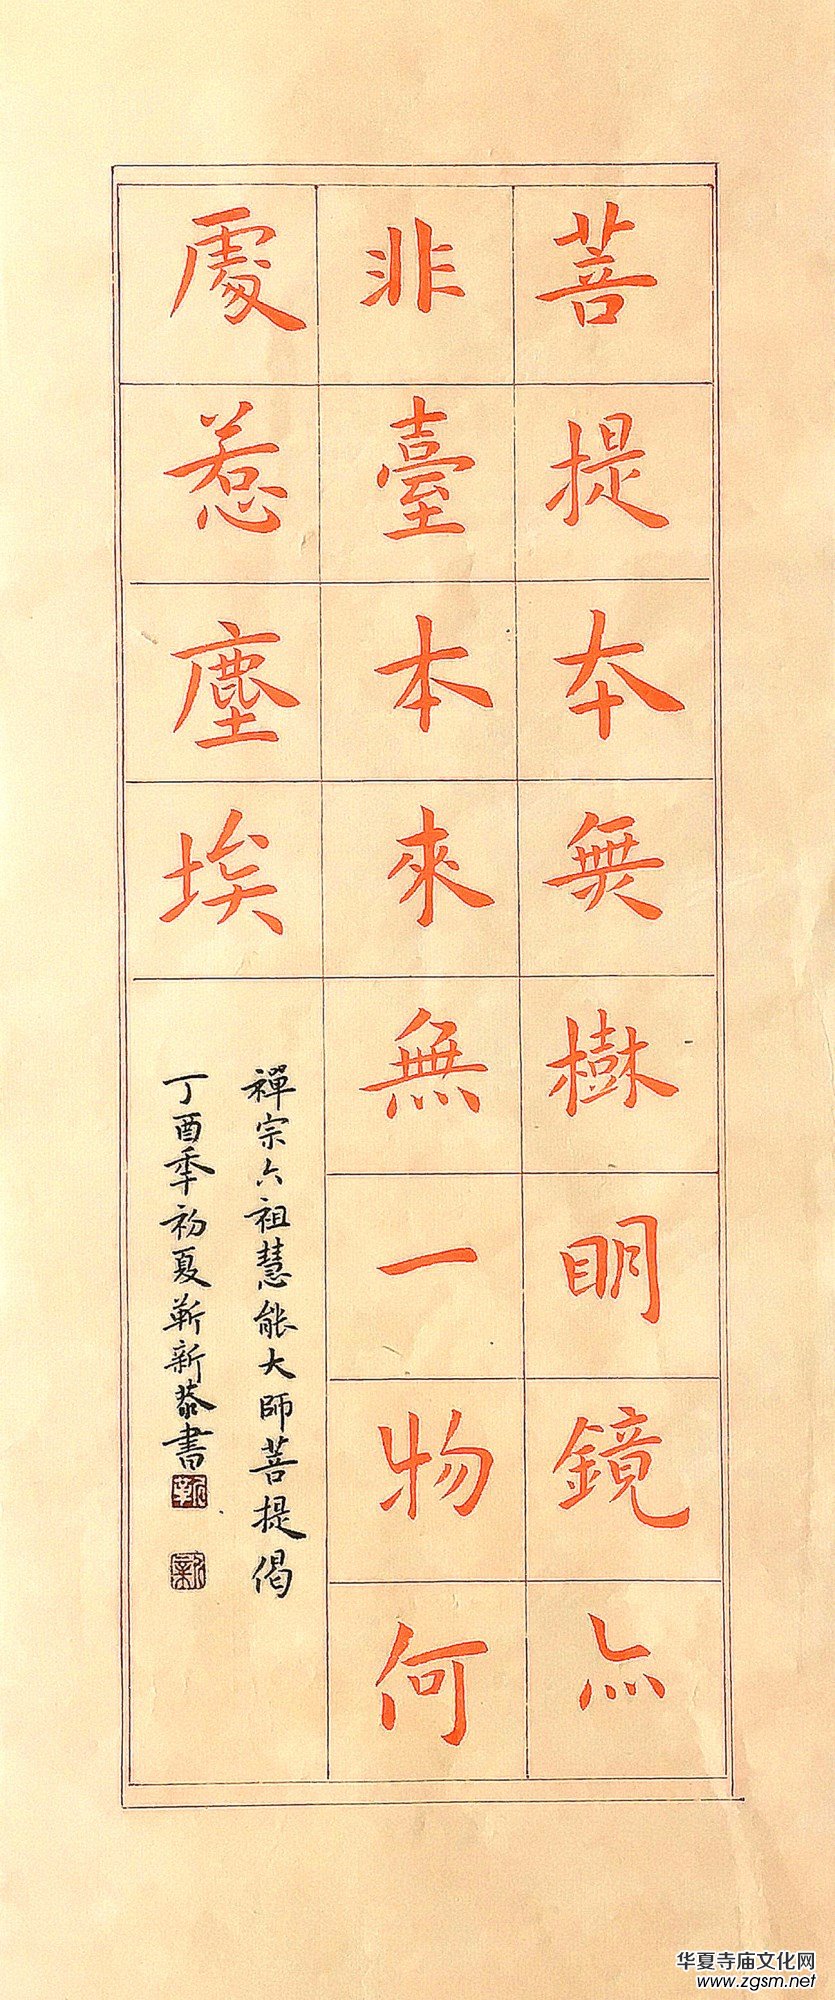 菩提本無樹明鏡亦
非臺本來無一物何
處惹塵埃
禪宗六祖慧能大師菩提偈
丁酉年初夏靳新恭書
靳
新
华夏寺庙文化网
www.zgsm.net